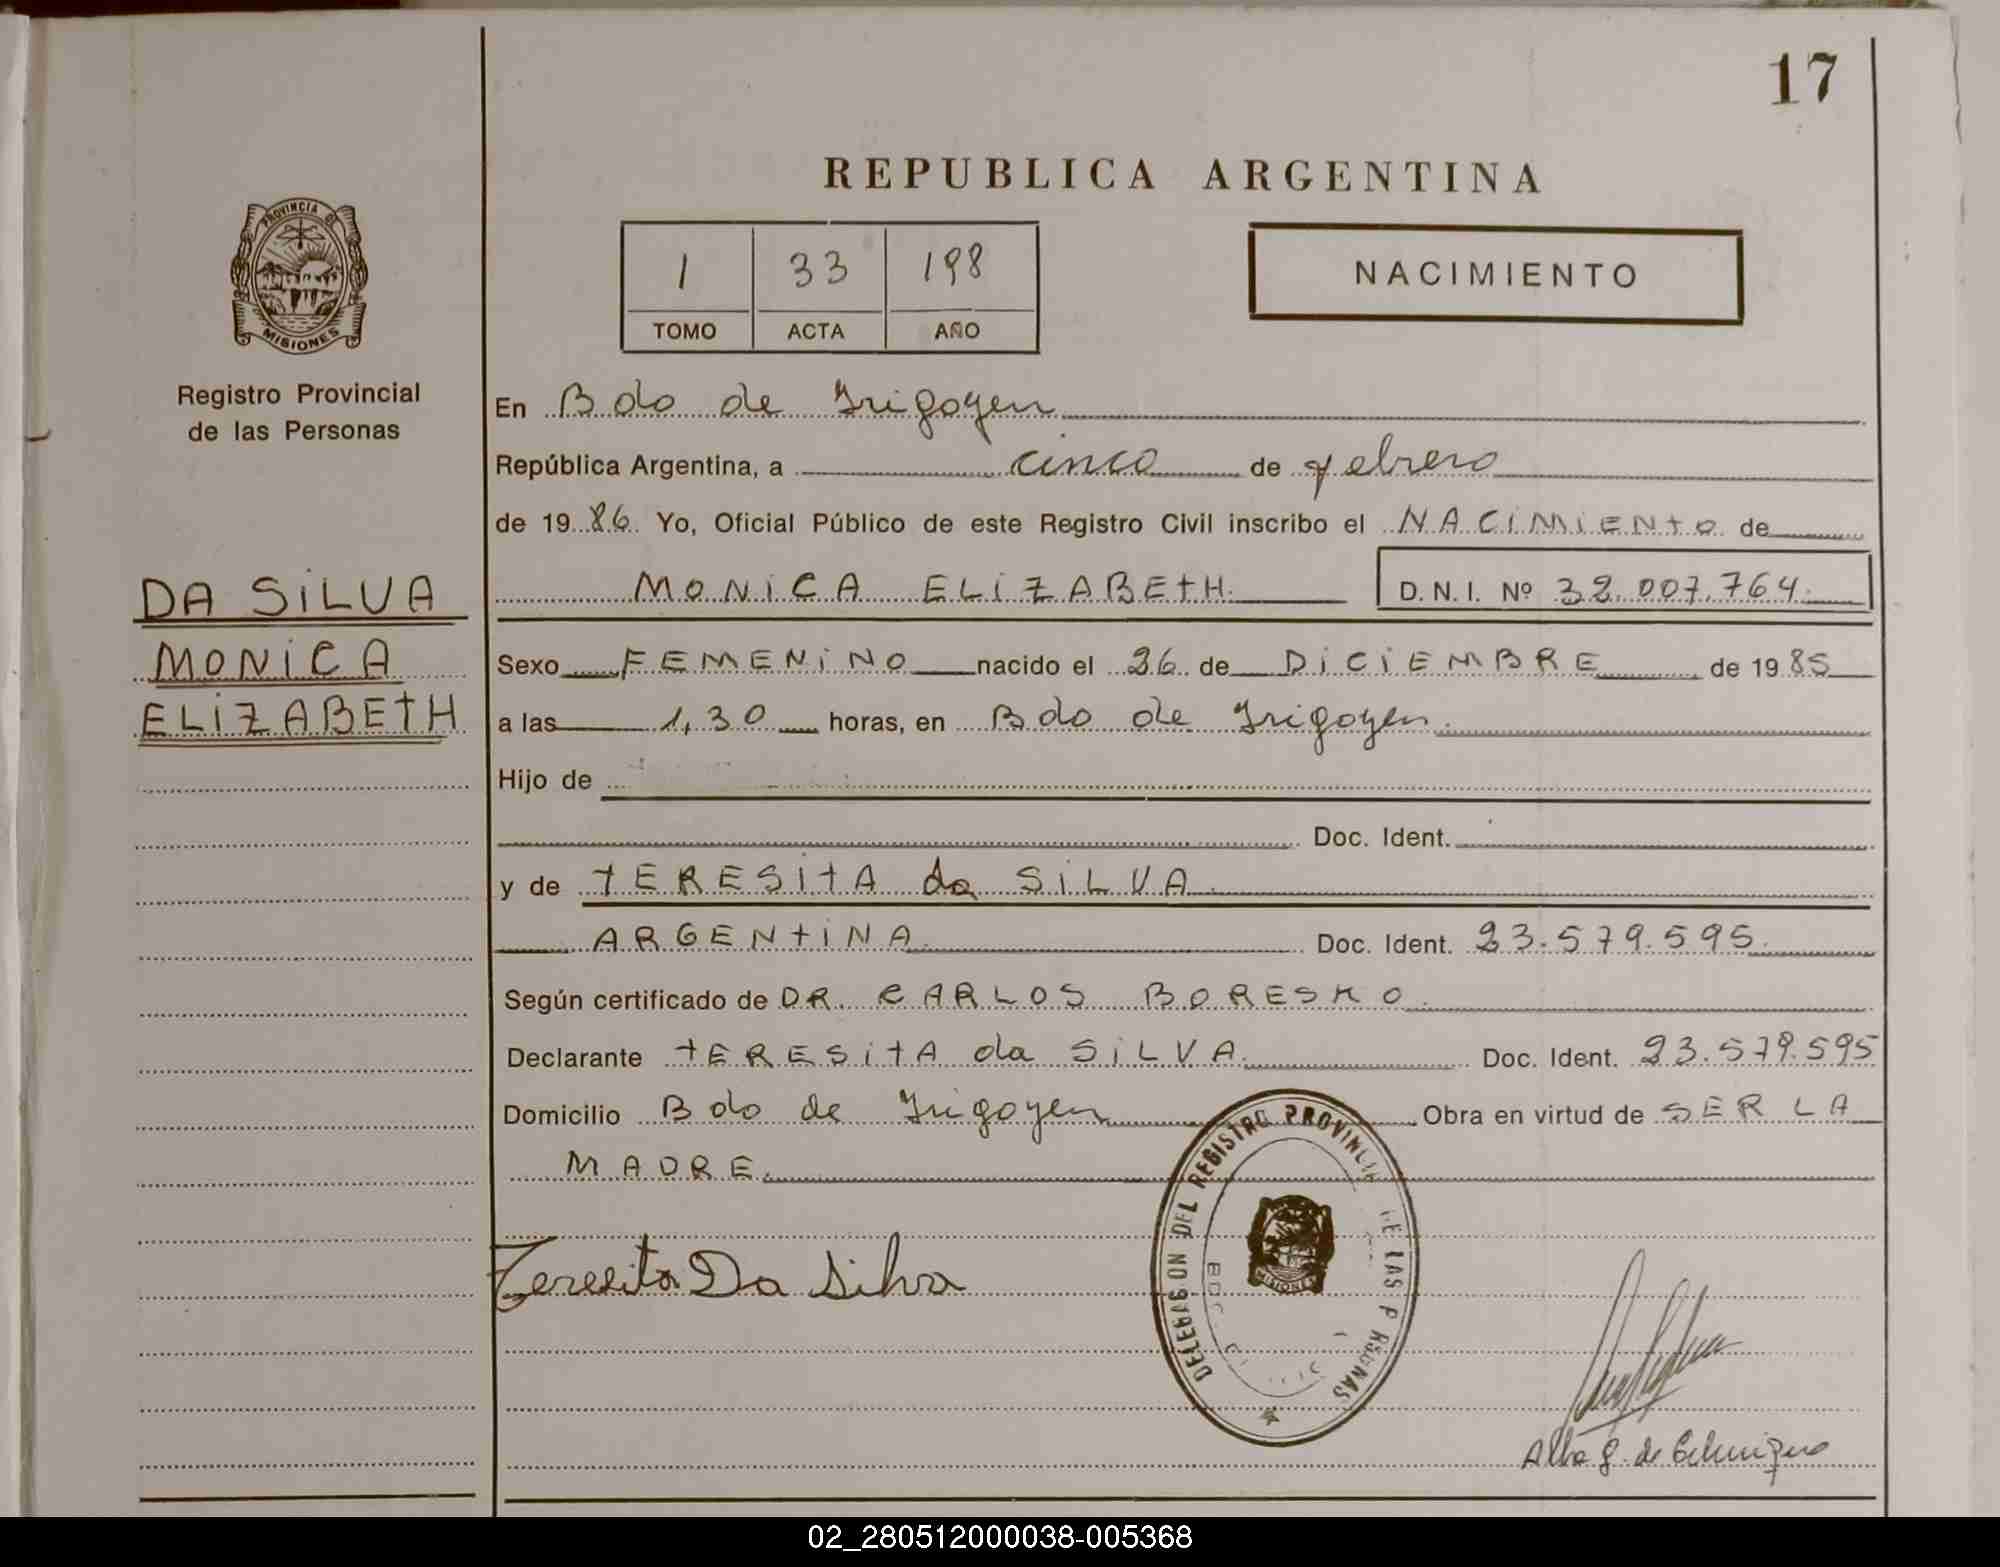 17
REPUBLICA ARGENTINA
PROVINCIA DE
MISIONES
1 33 198
TOMO ACTA AÑO
NACIMIENTO
Registro Provincial
de las Personas
DA SILVA
MONICA
ELIZABETH
En Bdo de Irigoyen
República Argentina, a cinco de febrero
de 1986. Yo, Oficial Público de este Registro Civil inscribo el NACIMIENTO de
MONICA ELIZABETH. D.N.I. Nº 32.007.764.
Sexo FEMENINO nacido el 26 de DICIEMBRE de 1985
a las 1,30 horas, en Bdo de Irigoyen.
Hijo de
Doc. Ident.
y de TERESITA da SILVA.
ARGENTINA. Doc. Ident. 23.579.595.
Según certificado de DR. CARLOS BORESKO.
Declarante TERESITA da SILVA. Doc. Ident. 23.579.595
Domicilio Bdo de Irigoyen Obra en virtud de SER LA
MADRE.
Teresita Da Silva
DELEGASION DEL REGISTRO PROVINCIA DE LAS P RSONAS
MISIONES
Alba G. de
02_280512000038-005368